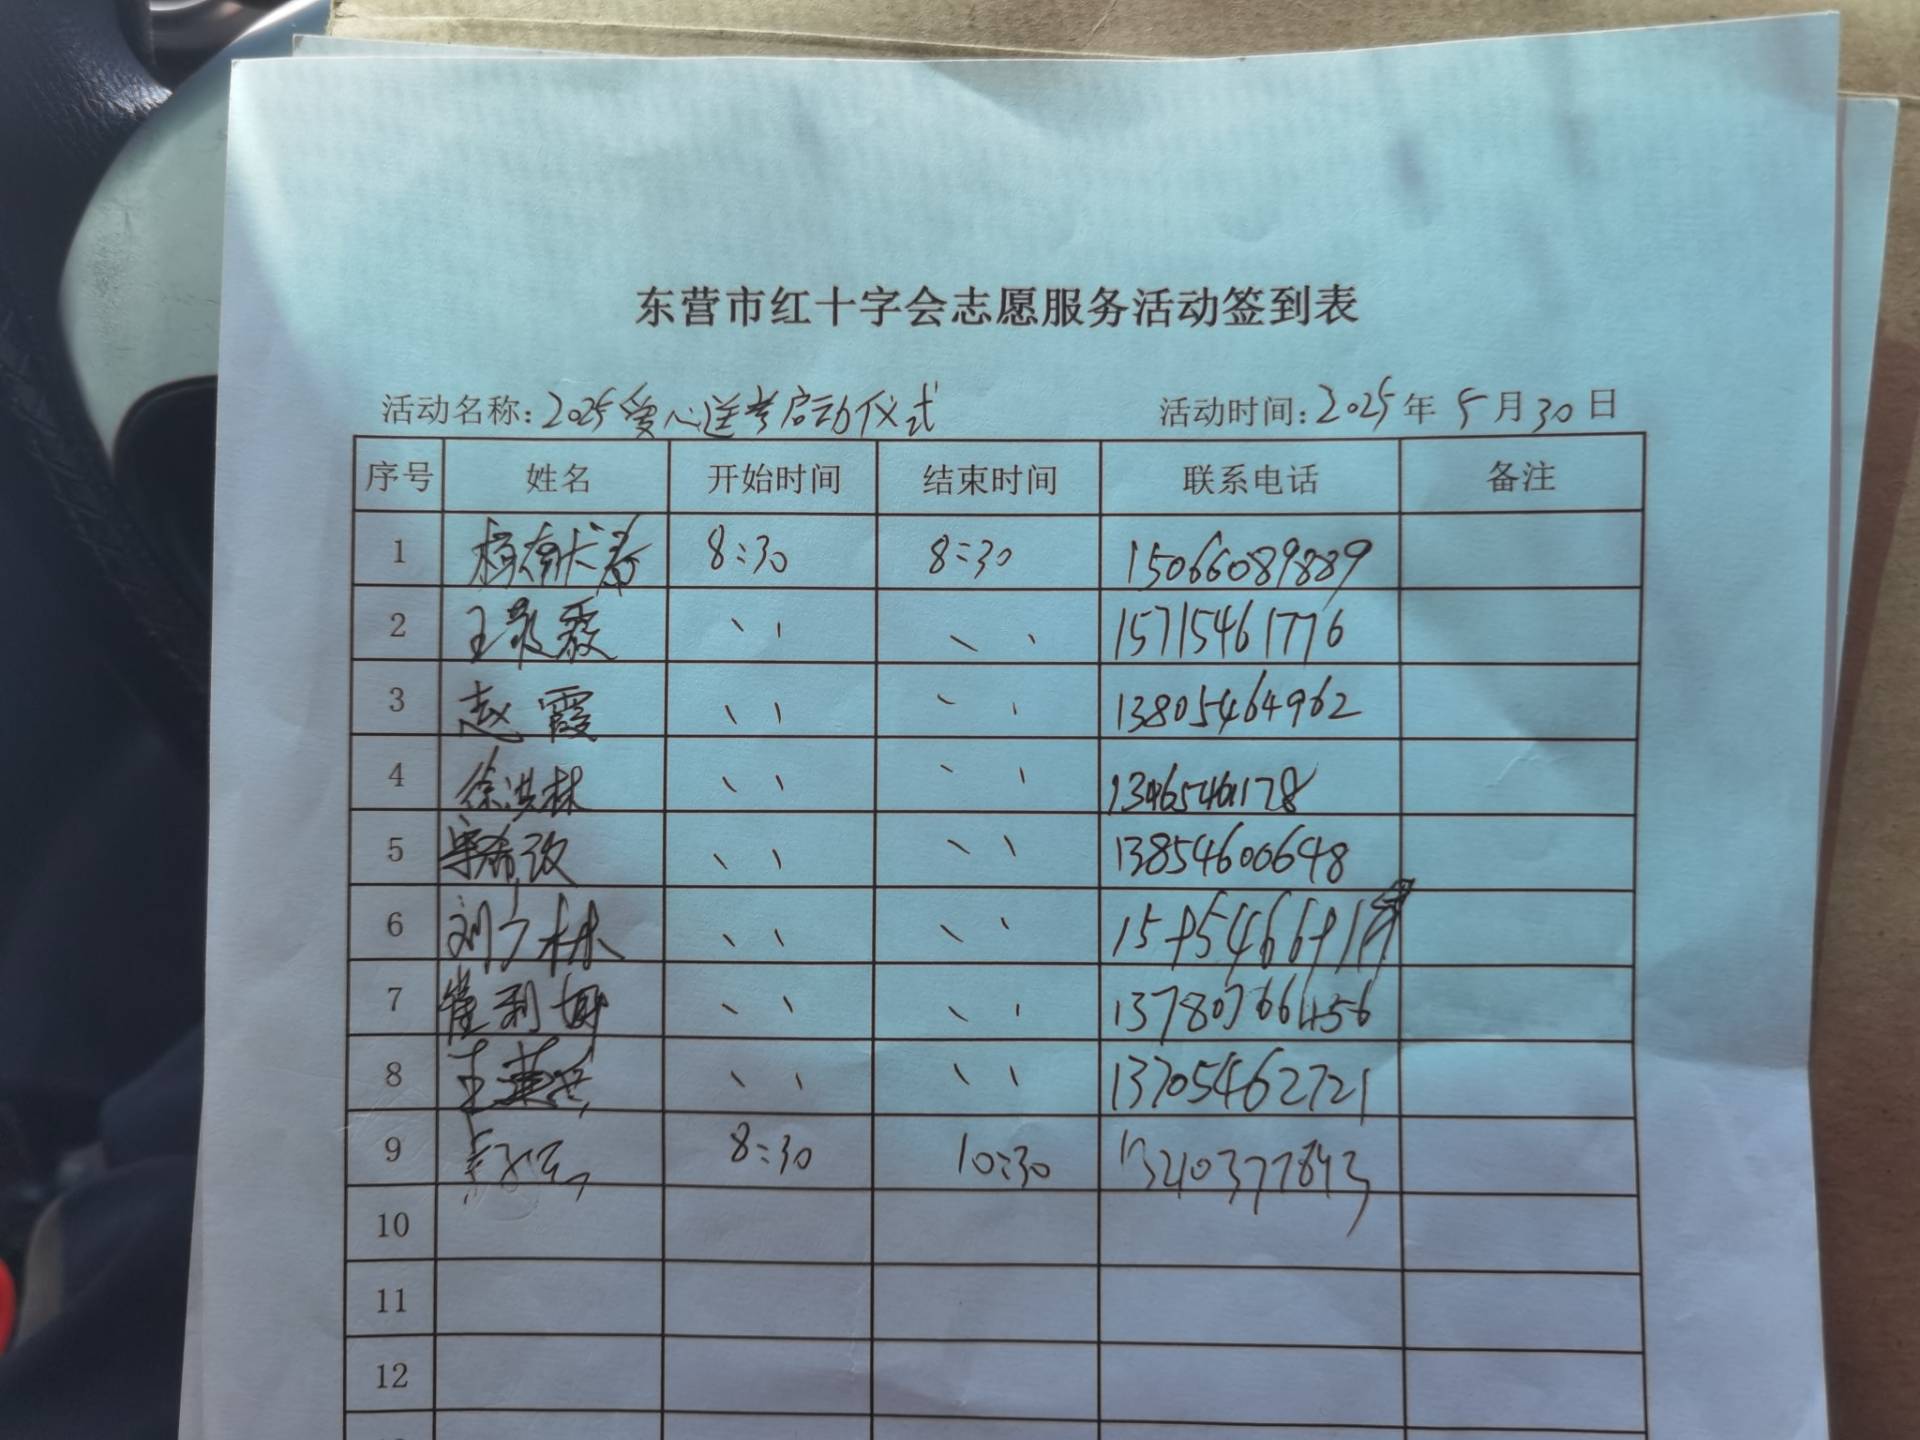 东营市红十字会志愿服务活动签到表
活动名称:2025爱心送考启动仪式 活动时间:2025年5月30日
序号 姓名 开始时间 结束时间 联系电话 备注
1 8:30 8:30 15066089889
2 王 霞 〃 〃 15715461776
3 赵霞 〃 〃 13805464962
4 徐洪林 〃 〃
5 〃 〃 13854600648
6 刘广林 〃 〃
7 崔利 〃 〃 13780766456
8 王 〃 〃 13705462721
9 8:30 10:30 13210377843
10
11
12